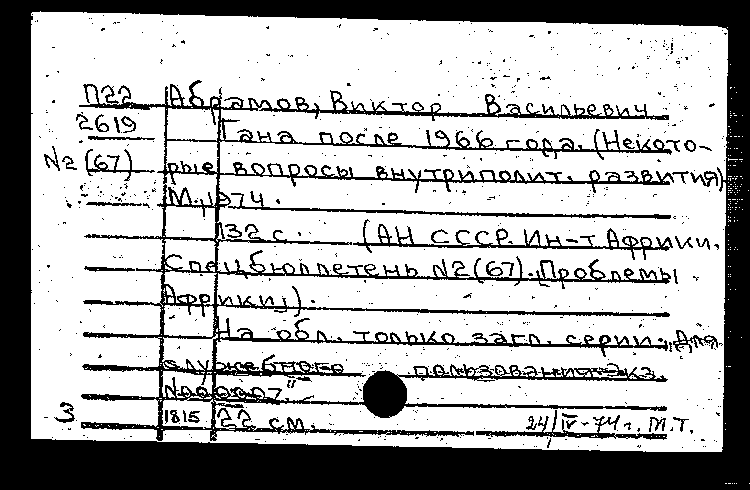 П22 Абрамов, Виктор Васильевич
2619 Гана после 1966 года. (Некото-
N2 (67) рые вопросы внутриполит. развития)
М., 1974.
132 с. (АН СССР. Ин-т Африки.
Спец. бюллетень N2 (67). [Проблемы
Африки]).
На обл. только загл. серии. "Для
служебного пользования. Экз.
N00007"
З 1815 22 см. 24/IV-74 г. М.Т.